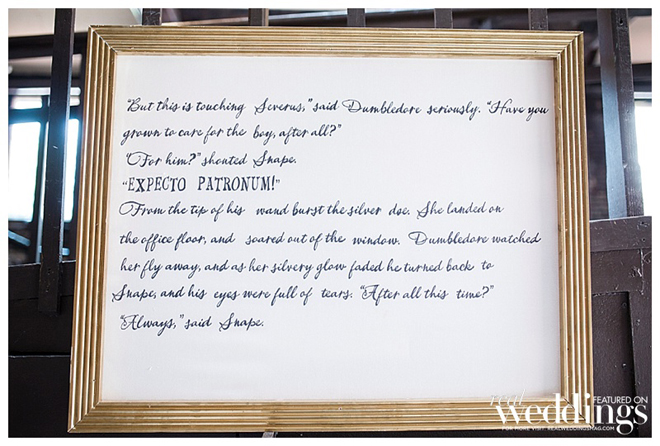 "But this is touching Severus," said Dumbledore seriously. "Have you
grown to care for the boy, after all?"
"For him?" shouted Snape.
"EXPECTO PATRONUM!"
From the tip of his wand burst the silver doe. She landed on
the office floor, and soared out of the window. Dumbledore watched
her fly away, and as her silvery glow faded he turned back to
Snape, and his eyes were full of tears. "After all this time?"
"Always," said Snape.
FEATURED ON
real WEDDINGS
FOR MORE VISIT: REALWEDDINGSMAG.COM